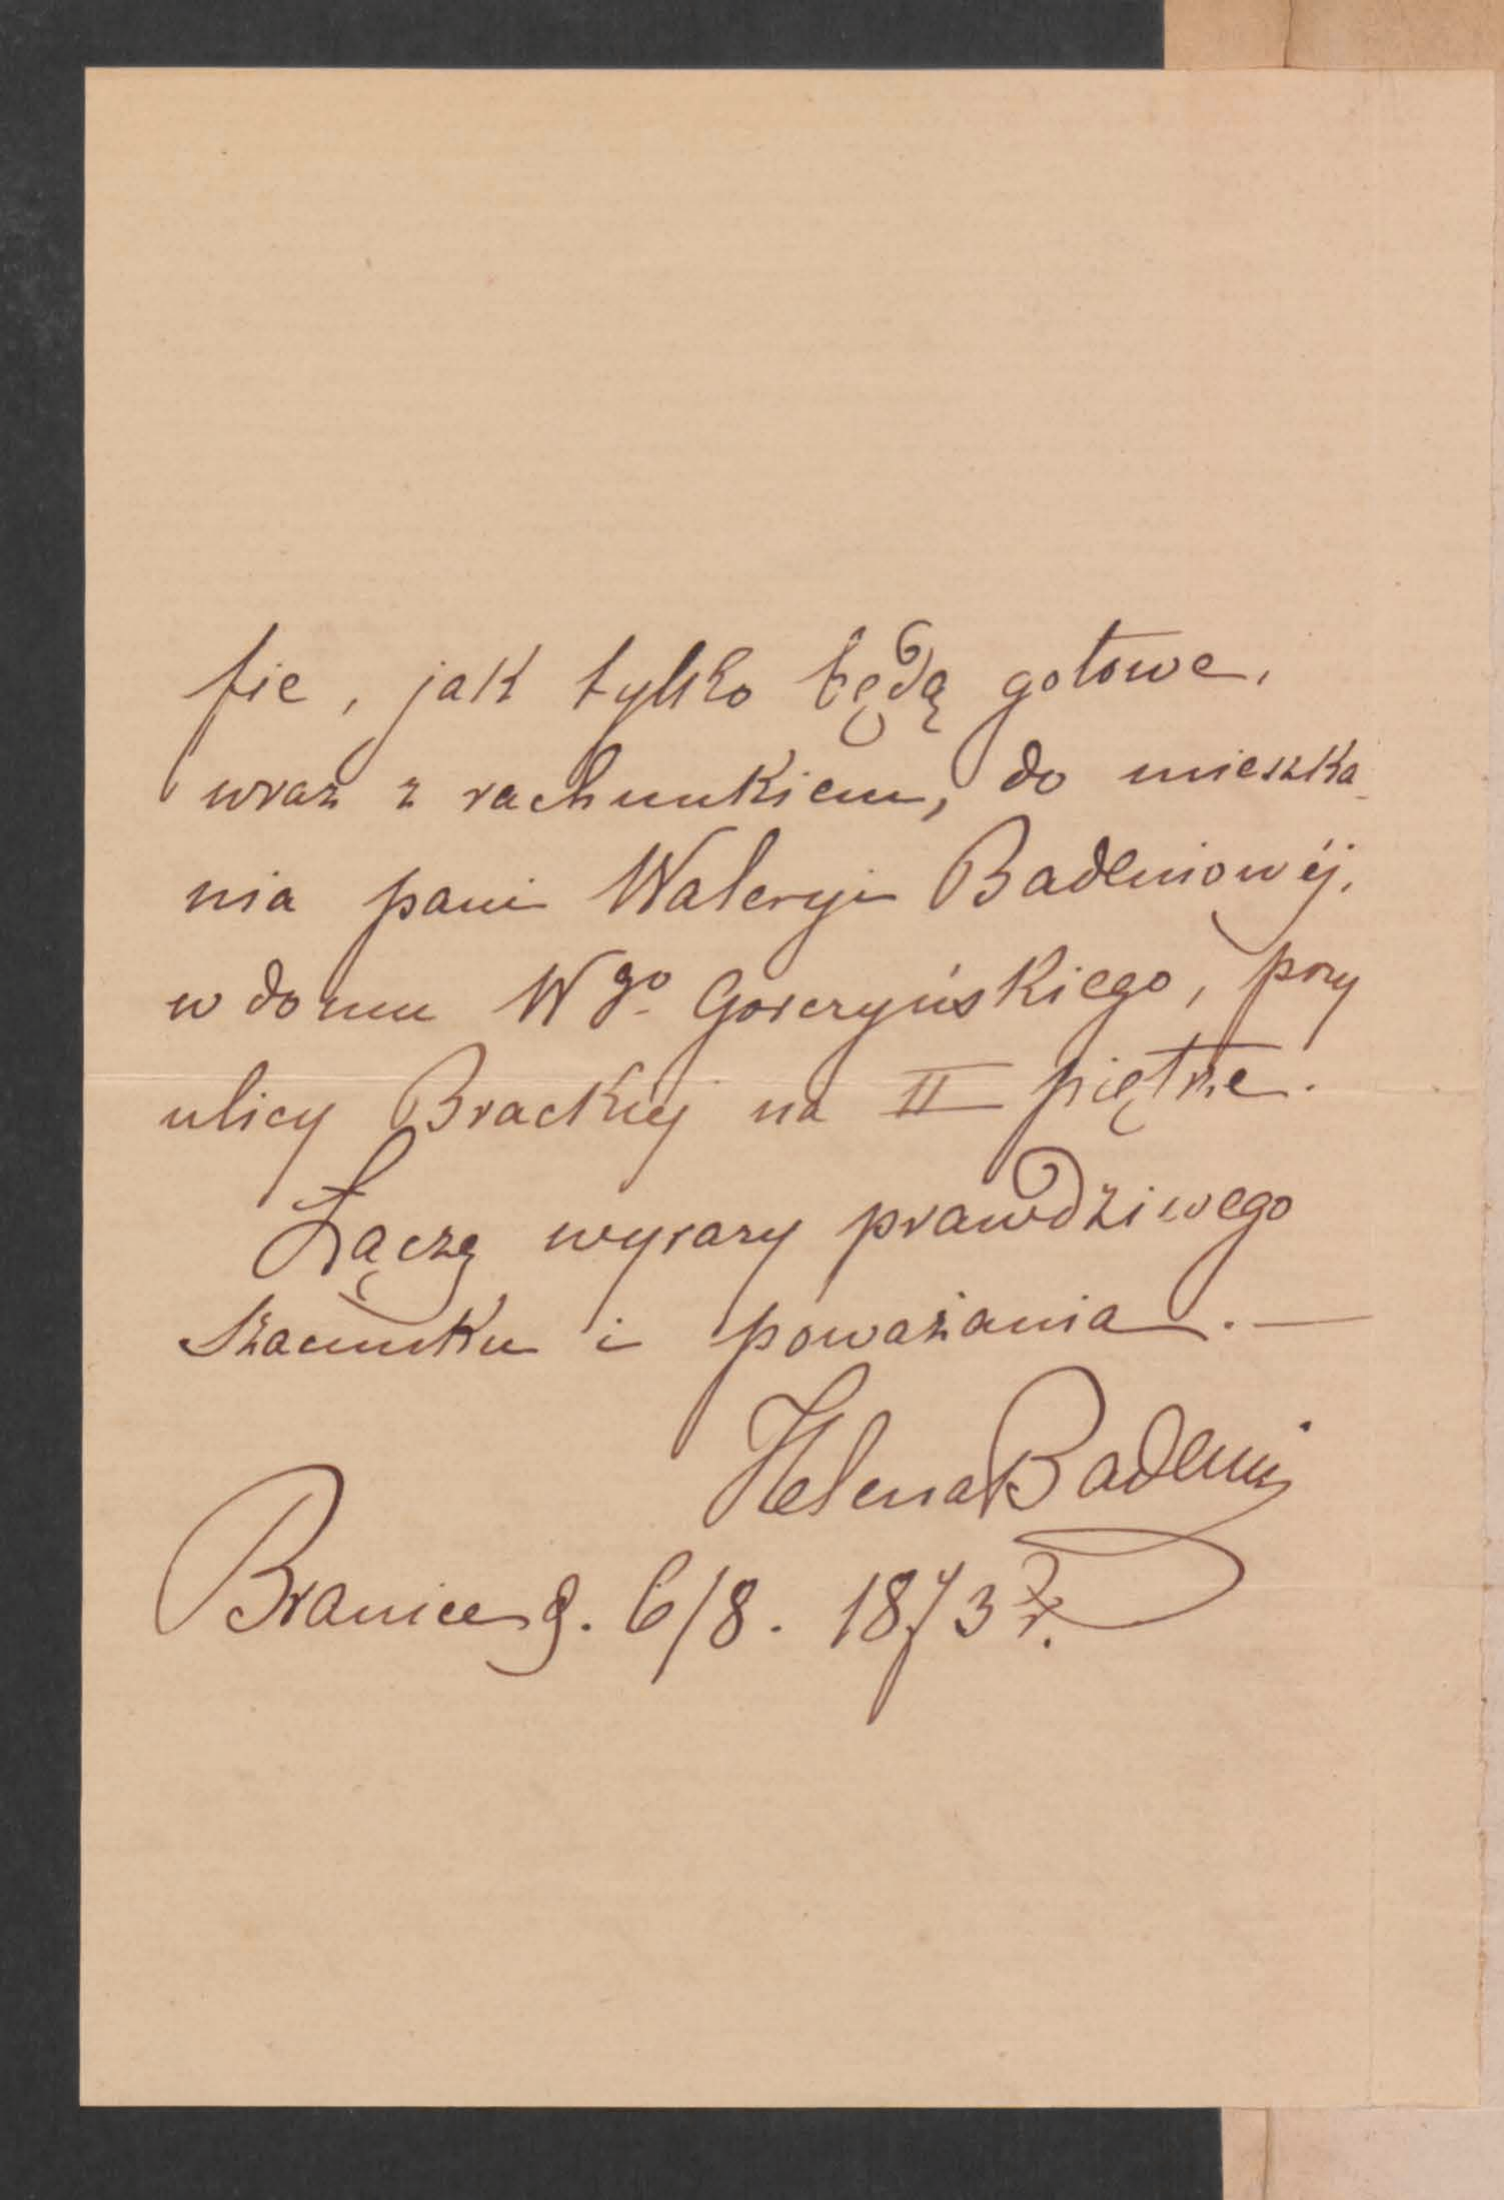 fie, jak tylko będą gotowe,
wraz z rachunkiem, do mieszka-
nia pani Waleryi Badeniowéj,
w domu Wgo Gorczyńskiego, przy
ulicy Brackiéj na II piętrze.
Łączę wyrazy prawdziwego
szacunku i poważania. —
Helena Badeni
Branice d. 6/8. 1873 r.